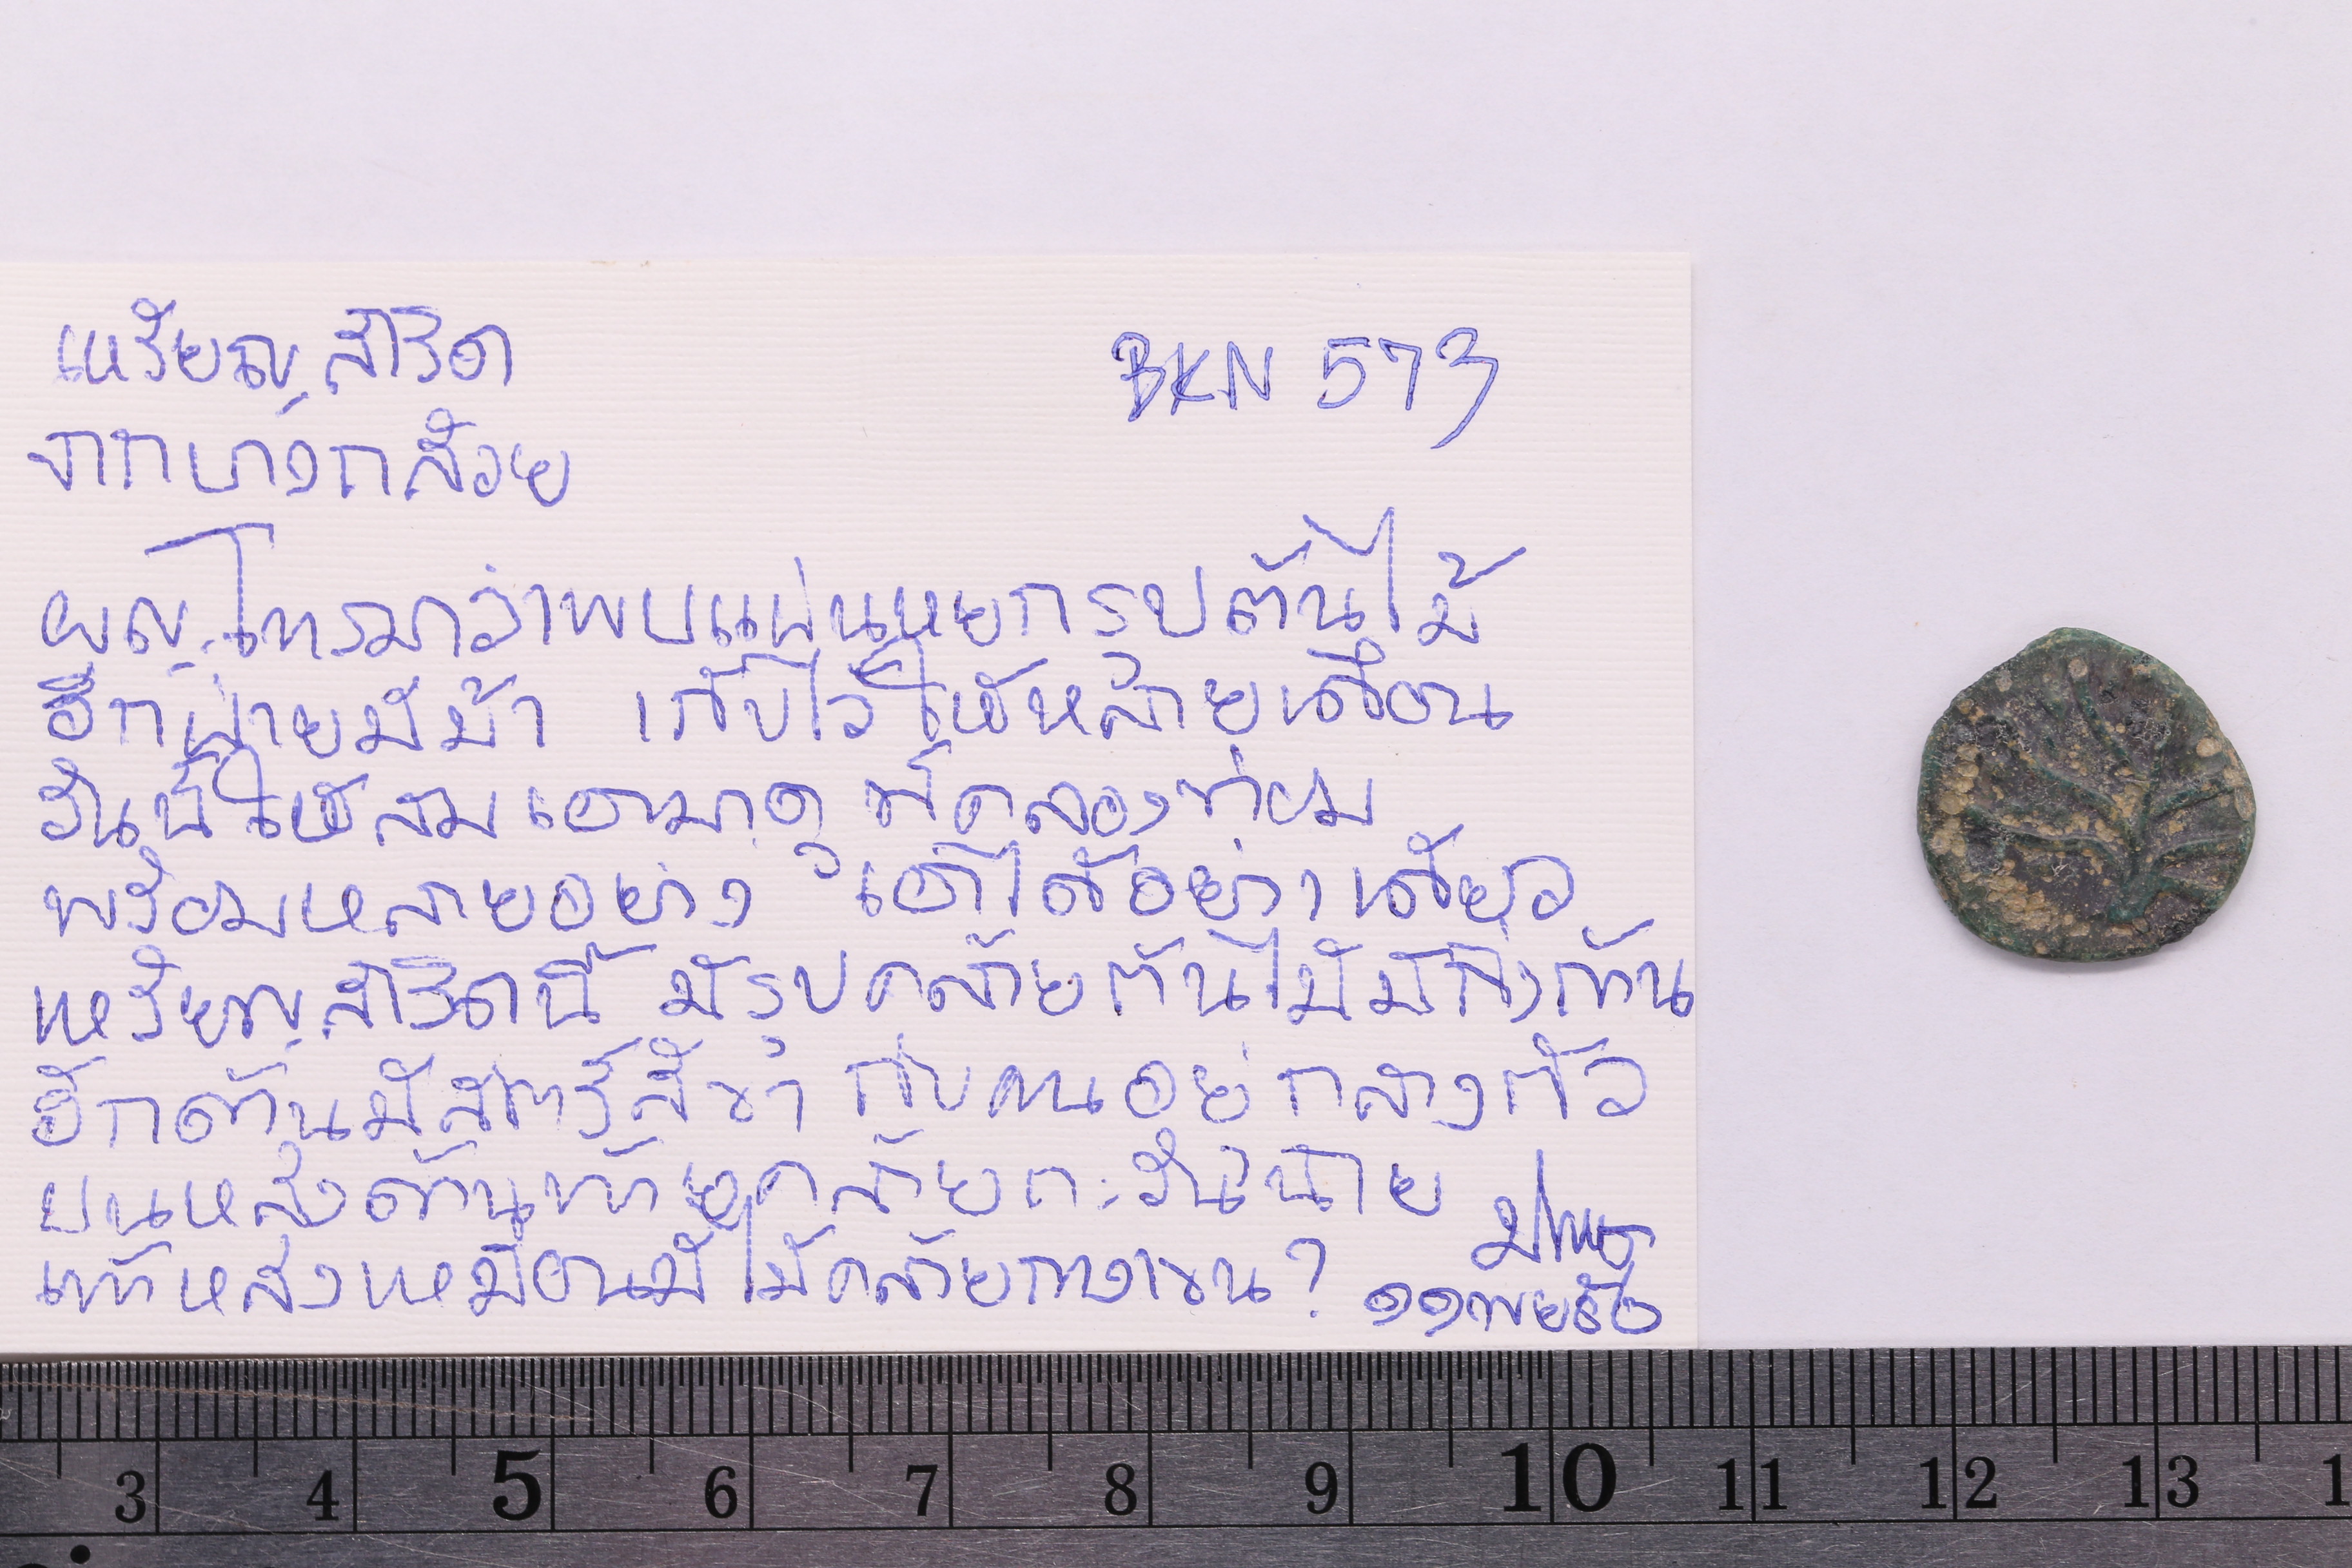 เหรียญสำริด
BKN 573
จากบางกล้วย
ผญ.โทรมาว่าพบแผ่นหยกรูปต้นไม้
อีกฝ่ายมีม้า เก็บไว้ให้หลายเดือน
วันนี้ให้สมเอามาดู ที่คลองท่อม
พร้อมหลายอย่าง เอาได้อย่างเดียว
เหรียญสำริดนี้ มีรูปคล้ายต้นไม้มีกิ่งก้าน
อีกด้านมีสัตว์สี่ขา กับคนอยู่กลางตัว
บนหลัง ด้านท้ายคล้าย
เท้าหลังเหมือนมีไม้คล้ายกางเขน?
๑๑พย๕๖
3 4 5 6 7 8 9 10 11 12 13 1